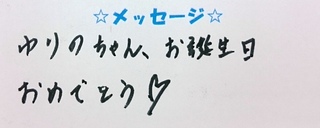 ☆メッセージ☆
ゆりのちゃん、お誕生日
おめでとう♡